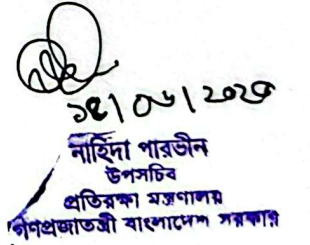 নাহিদা পারভীন
উপসচিব
প্রতিরক্ষা মন্ত্রণালয়
গণপ্রজাতন্ত্রী বাংলাদেশ সরকার